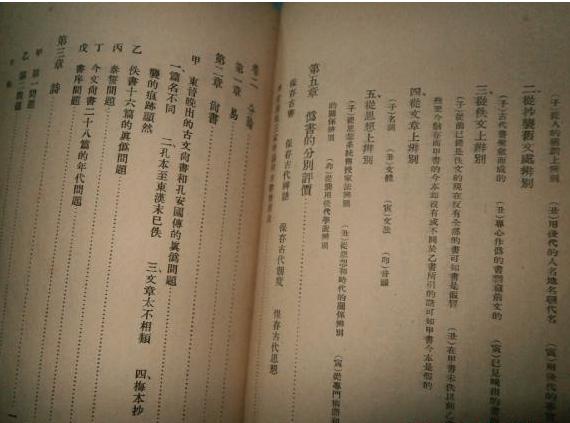 (子)從人的稱謂上辨別 (丑)用後代的人名地名朝代名 (寅)用後代的事實
二、從抄襲舊文處辨別
(子)古代書聚斂而成的 (丑)專心作僞的書剽竊前文的 (寅)已見晚出的書
三、從佚文上辨別
(子)從前已經是佚文的現在反有全部的書可知書是假冒 (丑)在甲書未佚以前
然至今猶存而甲書的今本却沒有或不同於乙書所引的話可知甲書今本是假的
四、從文章上辨別
(子)名詞 (丑)文體 (寅)文法 (卯)音韻
五、從思想上辨別
(子)從思想系統和傳授家法辨別 (丑)從思想和時代的關係辨別 (寅)從專門術語和
的關係辨別 (卯)從襲用後代學說辨別
第五章 僞書的分別評價
保存古書 保存古代神話 保存古代制度 保存古代思想
卷二 分論
第一章 易
第二章 尙書
甲 東晉晚出的古文尙書和孔安國傳的眞僞問題
一、篇名不同 二、孔本至東漢末已佚 三、文章太不相類 四、梅本抄
襲的痕跡顯然
乙 佚書十六篇的眞僞問題
丙 泰誓問題
丁 今文尙書二十八篇的年代問題
戊 書序問題
第三章 詩
甲 第一問題
乙 第二問題